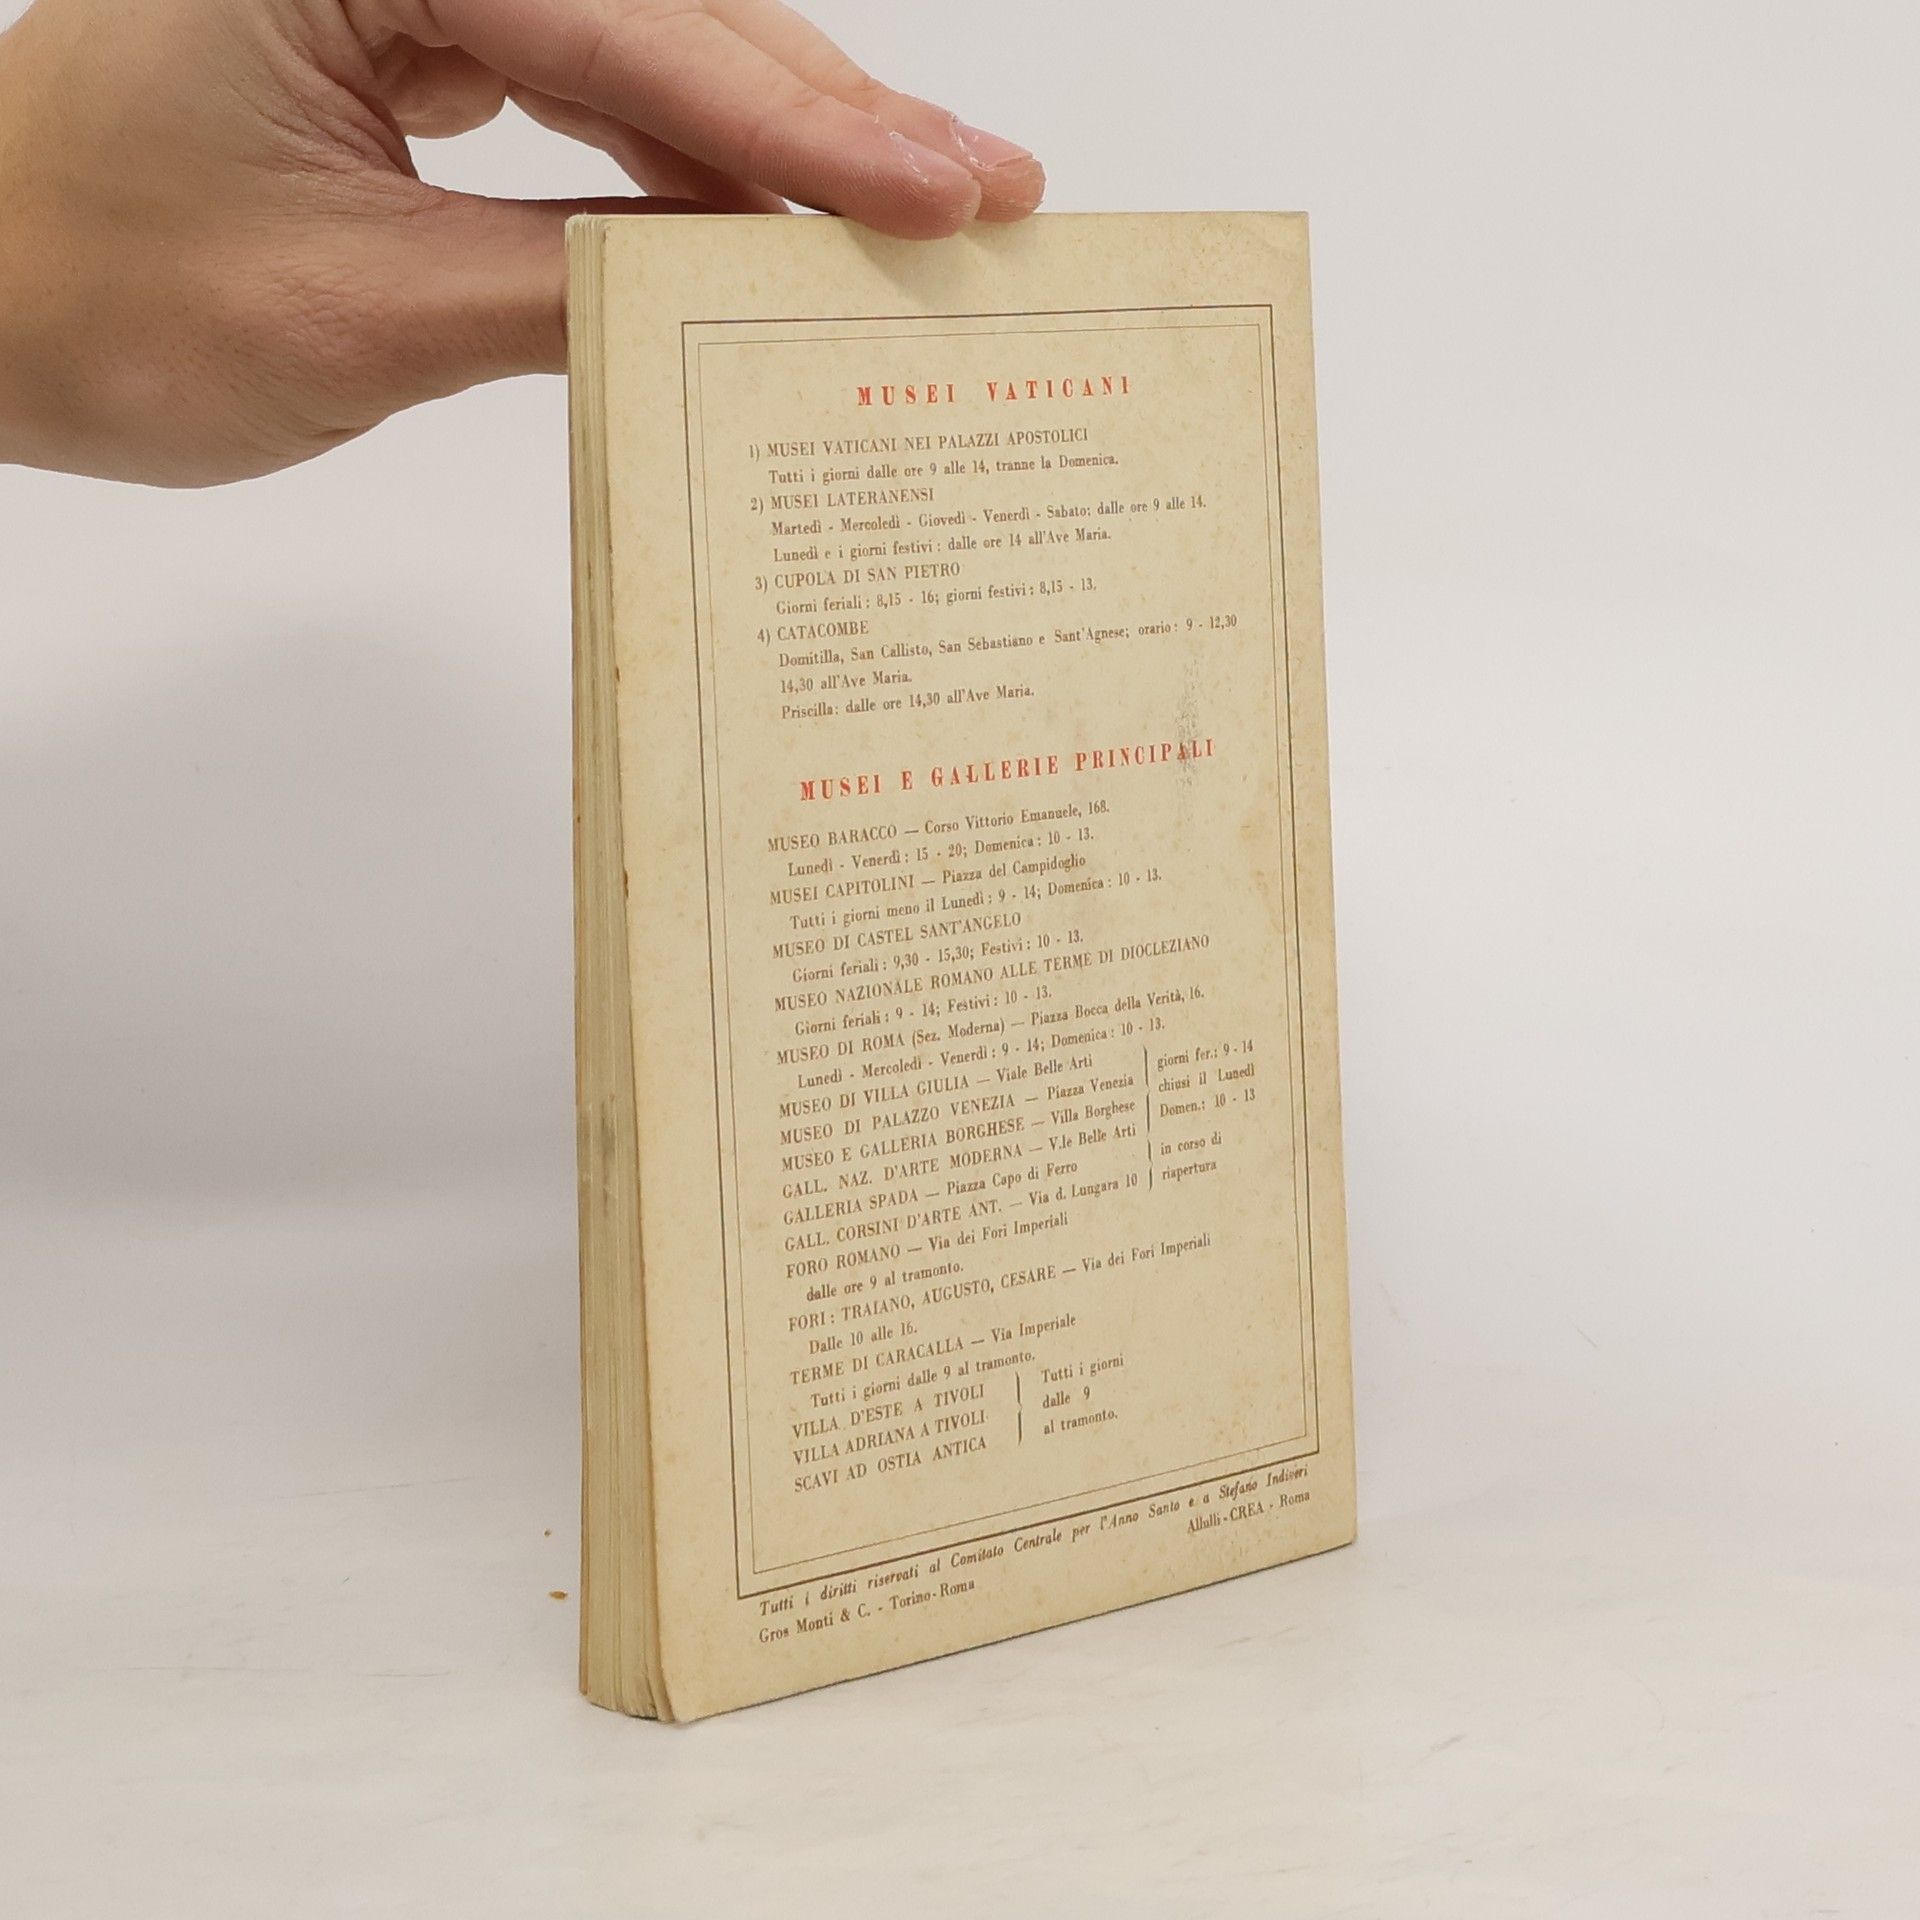 MUSEI VATICANI
1) MUSEI VATICANI NEI PALAZZI APOSTOLICI
Tutti i giorni dalle ore 9 alle 14, tranne la Domenica.
2) MUSEI LATERANENSI
Martedì - Mercoledì - Giovedì - Venerdì - Sabato: dalle ore 9 alle 14.
Lunedì e i giorni festivi: dalle ore 14 all'Ave Maria.
3) CUPOLA DI SAN PIETRO
Giorni feriali: 8,15 - 16; giorni festivi: 8,15 - 13.
4) CATACOMBE
Domitilla, San Callisto, San Sebastiano e Sant'Agnese; orario: 9 - 12,30
14,30 all'Ave Maria.
Priscilla: dalle ore 14,30 all'Ave Maria.
MUSEI E GALLERIE PRINCIPALI
MUSEO BARACCO — Corso Vittorio Emanuele, 168.
Lunedì - Venerdì: 15 - 20; Domenica: 10 - 13.
MUSEI CAPITOLINI — Piazza del Campidoglio
Tutti i giorni meno il Lunedì: 9 - 14; Domenica: 10 - 13.
MUSEO DI CASTEL SANT'ANGELO
Giorni feriali: 9,30 - 15,30; Festivi: 10 - 13.
MUSEO NAZIONALE ROMANO ALLE TERME DI DIOCLEZIANO
Giorni feriali: 9 - 14; Festivi: 10 - 13.
MUSEO DI ROMA (Sez. Moderna) — Piazza Bocca della Verità, 16.
Lunedì - Mercoledì - Venerdì: 9 - 14; Domenica: 10 - 13.
MUSEO DI VILLA GIULIA — Viale Belle Arti
MUSEO DI PALAZZO VENEZIA — Piazza Venezia
MUSEO E GALLERIA BORGHESE — Villa Borghese
GALL. NAZ. D'ARTE MODERNA — V.le Belle Arti
giorni fer.: 9 - 14
chiusi il Lunedì
Domen.: 10 - 13
GALLERIA SPADA — Piazza Capo di Ferro
GALL. CORSINI D'ARTE ANT. — Via d. Lungara 10
in corso di
riapertura
FORO ROMANO — Via dei Fori Imperiali
dalle ore 9 al tramonto.
FORI: TRAIANO, AUGUSTO, CESARE — Via dei Fori Imperiali
Dalle 10 alle 16.
TERME DI CARACALLA — Via Imperiale
Tutti i giorni dalle 9 al tramonto.
VILLA D'ESTE A TIVOLI
VILLA ADRIANA A TIVOLI
SCAVI AD OSTIA ANTICA
Tutti i giorni
dalle 9
al tramonto.
Tutti i diritti riservati al Comitato Centrale per l'Anno Santo e a Stefano Indiveri
Gros Monti & C. - Torino-Roma
Allulli - CREA - Roma